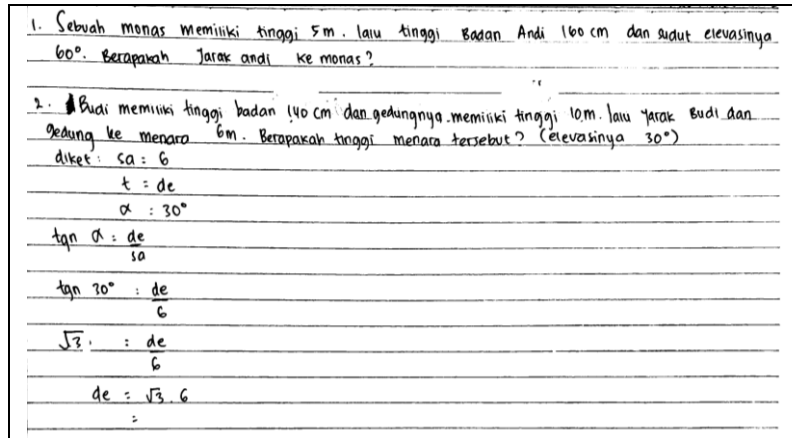 1. Sebuah monas memiliki tinggi 5m. lalu tinggi Badan Andi 160 cm dan sudut elevasinya
60°. Berapakah Jarak andi ke monas?
2. Budi memiliki tinggi badan 140 cm dan gedungnya memiliki tinggi 10m. lalu Jarak Budi dan
gedung ke menara 6m. Berapakah tinggi menara tersebut? (elevasinya 30°)
diket: sa : 6
t = de
α : 30°
tan α : de/sa
tan 30° : de/6
√3. : de/6
de = √3 . 6
=